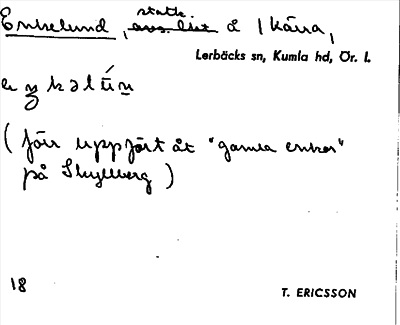 Enkelund, statt. å Kärra,
Lerbäcks sn, Kumla hd, Ör. l.
(förr uppfört åt "gamla enkor"
på Skyllberg)
18
T. ERICSSON